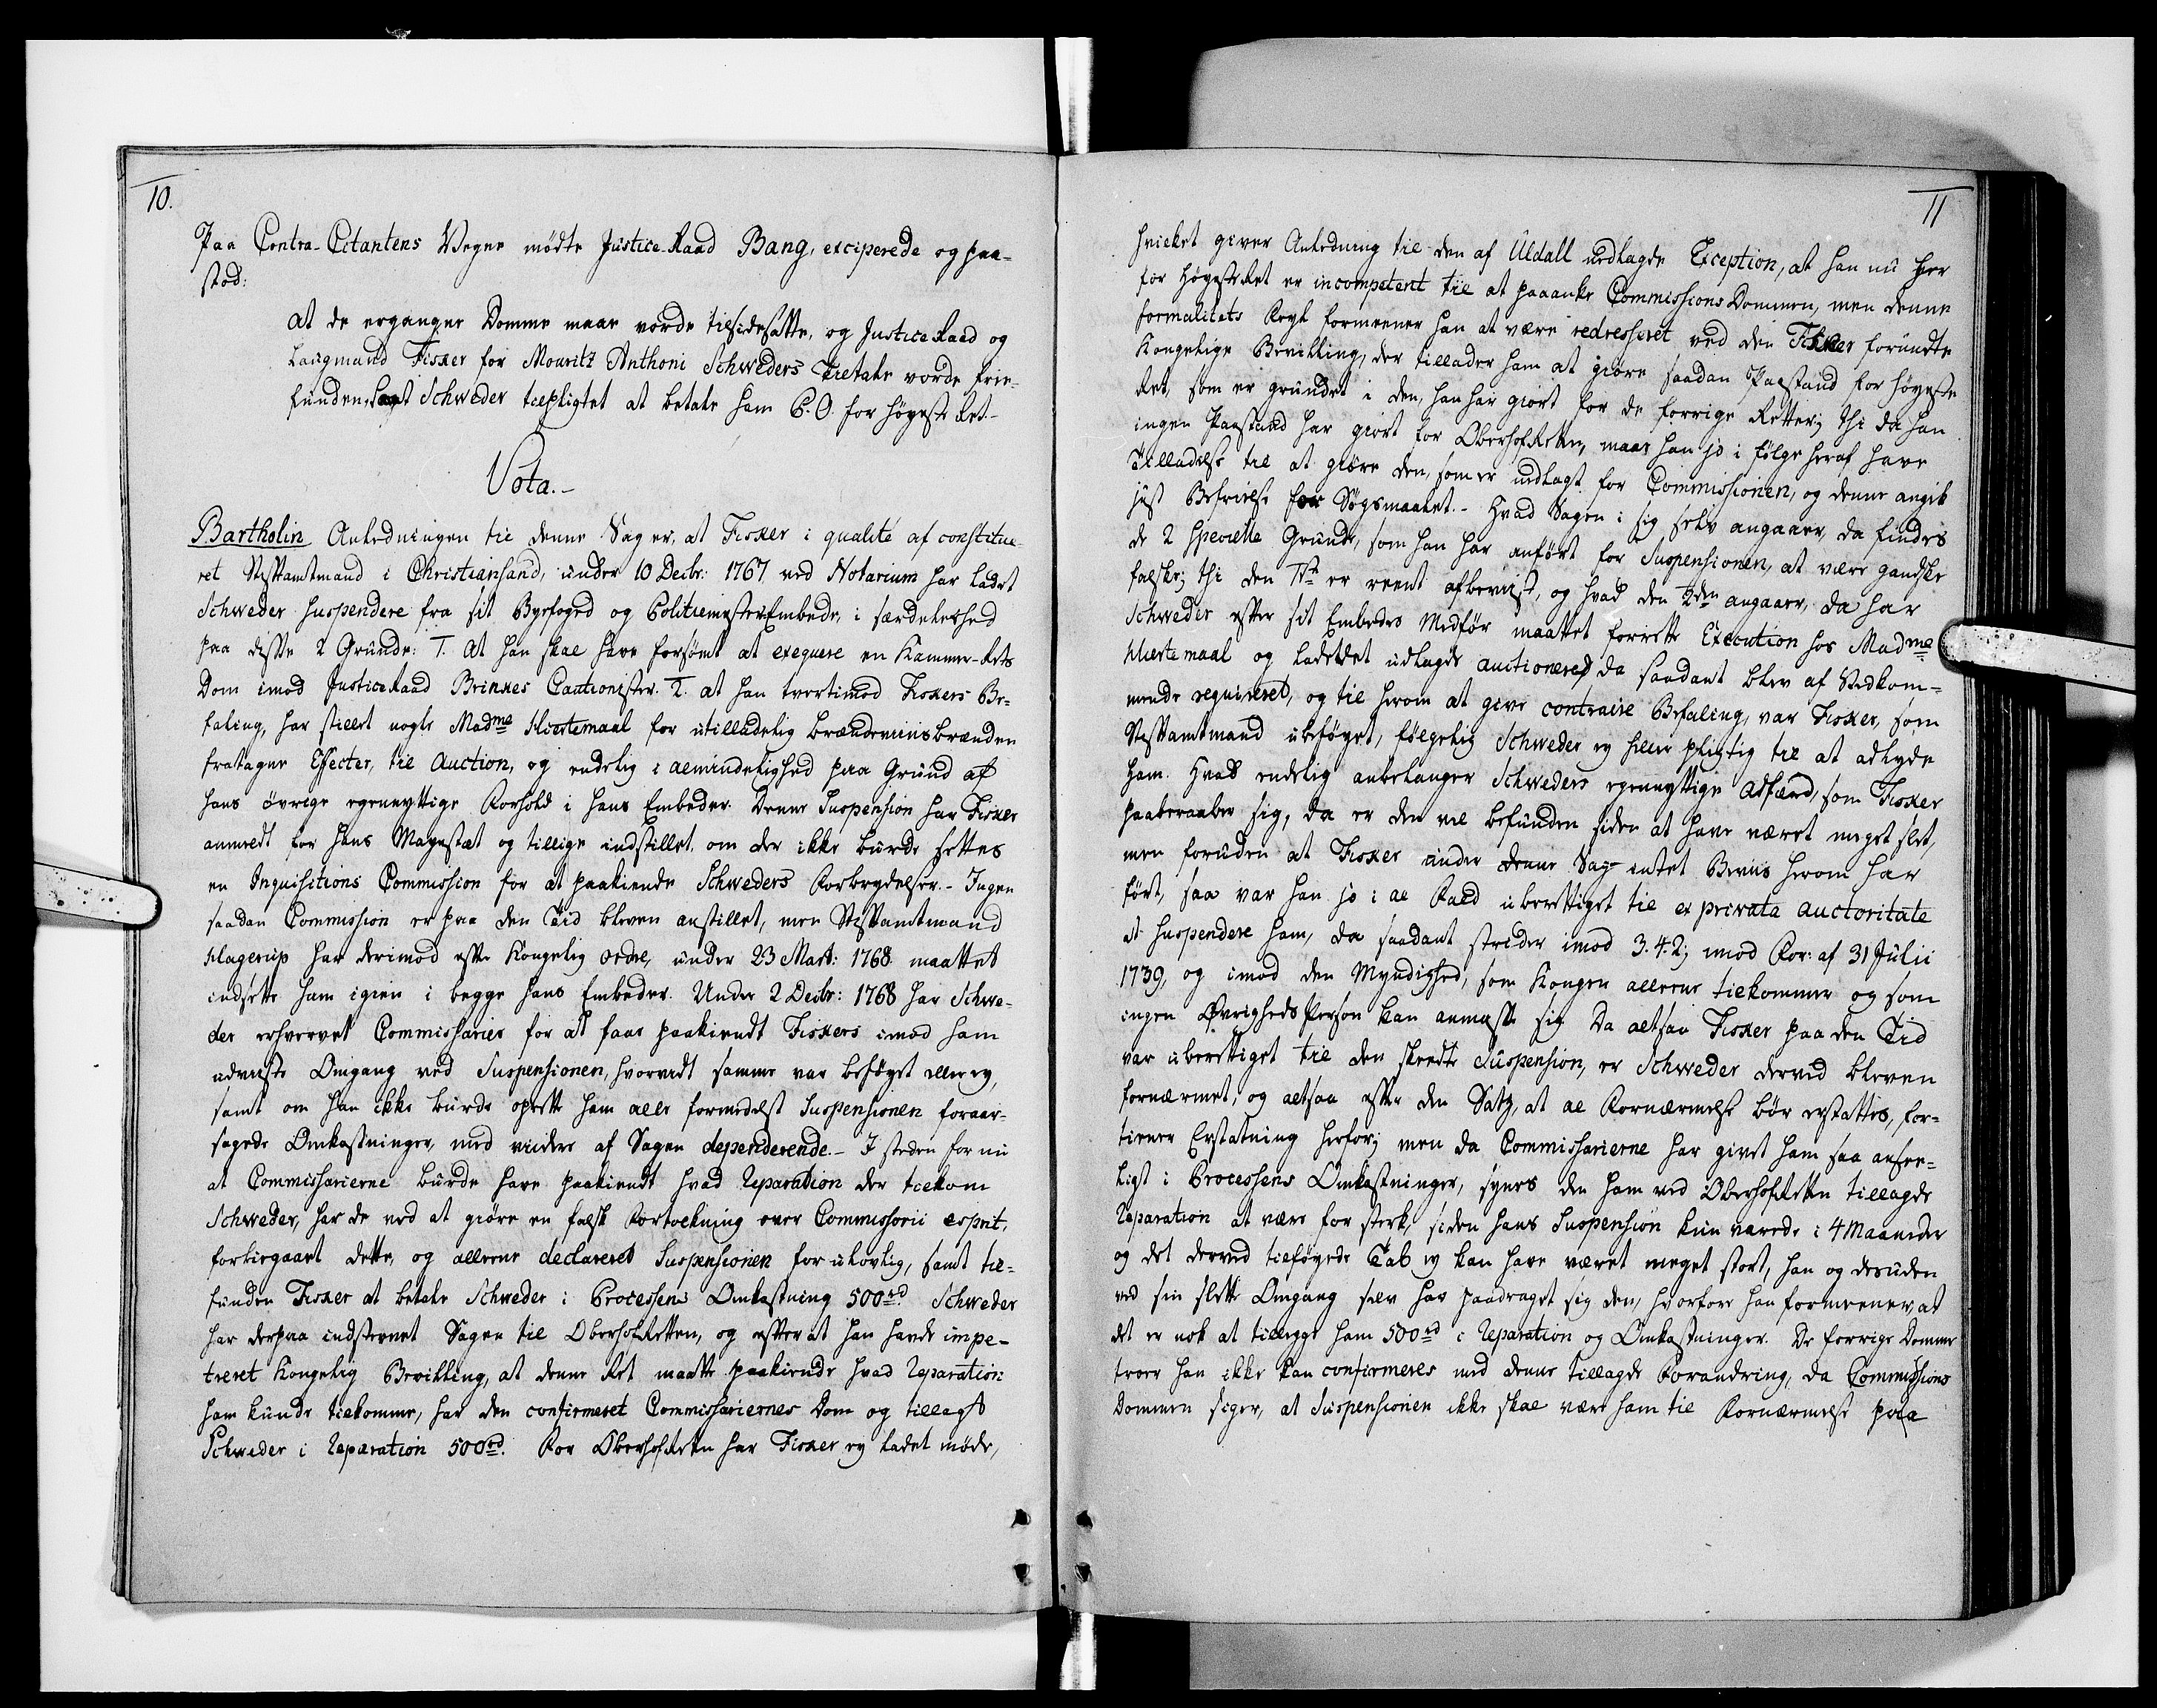 10.
Paa Contra-Citantens Vegne mødte Justice-Raad Bang, exciperede og paa-
stod:
At de ergangne Domme maae vorde tilsidesatte, og Justice Raad og
Laugmand Fisker for Mouritz Anthoni Schweders Tiltale vorde frie-
funden, samt Schweder tilpligtet at betale ham P.O. for Høyeste Ret.-
Vota.-
Bartholin Anledningen til denne Sag er, at Fisker i qualité af constitue-
ret Stiftamtmand i Christiansand, under 10 Decbr: 1767 ved Notarium har ladet
Schweder suspendere fra sit Byefoged og PolitiemesterEmbede, i særdeleshed
paa disse 2 Grunde: 1. At han skal have forsømt at exeqvere en Kammer-Rets
Dom imod Justice Raad Brinkes Cautionister. 2. at han tvertimod Fiskers Be-
faling, har stillet nogle Madme Hiertemaal for utilladelig Brændeviinsbrænden
fratagne Effecter, til Auction, og endelig i almindelighed paa Grund af
hans øvrige egennyttige Forhold i hans Embeder. Denne Suspension har Fisker
anmeldt for Hans Mayestæt og tillige indstillet om der ikke burde settes
en Inquisitions Commission for at paakiende Schweders Forbrydelser.- Ingen
saadan Commission er paa den Tid bleven anstillet, men Stiftamtmand
Hagerup har derimod efter Kongelig Ordre, under 23 Mart: 1768 maattet
indsætte ham igien i begge hans Embeder. Under 2 Decbr: 1768 har Schwe-
der erhvervet Commissarier for at faae paakiendt Fiskers imod ham
udviiste Omgang ved Suspensionen, hvorvidt samme var beføyet eller ey,
samt om han ikke burde oprette ham alle formedelst Suspensionen foraar-
sagede Omkostninger, med videre af Sagen dependerende.- I steden for nu
at Commissarierne burde have paakiendt hvad Reparation der tilkom
Schweder, har de ved at giøre en falsk Fortolkning over Commissorii esprit,
forbiegaaet dette, og allene declareret Suspensionen for ulovlig, samt til-
funden Fisker at betale Schweder i Processens Omkostning 500rd. Schweder
har derpaa indstevnet Sagen til OberhofRetten, og efter at han havde impe-
treret Kongelig Bevilling, at denne Ret maatte paakiende hvad Reparation
ham kunde tilkomme, har den confirmeret Commissariernes Dom og tillagt
Schweder i Reparation 500rd. For OberhofRetten har Fisker ey ladet møde,
11
hvilket giver Anledning til den af Uldall udtagde Exception, at han nu her
for HøyesteRet er incompetent til at paaanke CommissionsDommen, men denne
formalitets Feyl formeener han at være redresseret ved den Fisker forundte
Kongelige Bevilling, der tillader ham at giøre saadan Paastand for Høyeste
Ret, som er grundet i den, han har giort for de forrige Retter; thi da han
ingen Paastand har giort for OberhofRetten, maae han jo i følge heraf have
Tilladelse til at giøre den, som er udlagt for Commissionen, og denne angik
just Befrielse for Søgsmaalet.- Hvad Sagen i sig selv angaaer, da findes
de 2 specielle Grunde, som han har anført for Suspensionen, at være gandske
falske; thi den 1ste er reent afbeviist, og hvad den 2den angaaer, da har
Schweder efter sit Embedes Medfør maattet forrette Execution hos Madme
Hiertemaal og ladet det udlagde auctioneret, da saadant blev af Vedkom-
mende requireret, og til herom at give contraire Befaling, var Fisker, som
Stiftamtmand ubeføyet, følgelig Schweder ey heller pligtig til at adlyde
ham. Hvad endelig anbelanger Schweders egennyttige Adfærd, som Fisker
paaberaaber sig, da er den vel befunden siden at have været meget slet,
men foruden at Fisker under denne Sag intet Beviis herom har
ført, saa var han jo i al Fald uberettiget til ex privata auctoritate
at suspendere ham, da saadant strider imod 3.4.2; imod For: af 31 Julii
1739, og imod den Myndighed, som Kongen allene tilkommer og som
ingen ØvrighedsPerson kan anmasse sig. Da altsaa Fisker paa den Tid
var uberettiget til den skeedte Suspension, er Schweder derved bleven
fornærmet, og altsaa efter den Satz, at al Fornærmelse bør erstattes, for-
tiener Erstatning herfor; men da Commissarierne har givet ham saa anseer-
ligt i Processens Omkostninger, synes den ham ved OberhofRetten tillagde
Reparation at være for sterk, siden hans Suspension kun varede i 4 Maaneder
og det derved tilføyede Tab ey kan have været meget stort, han og desuden
ved sin slette Omgang selv har paadraget sig den, hvorfore han formeener, at
det er nok at tillegge ham 500rd i Reparation og Omkostninger. De forrige Domme
troer han ikke kan confirmeres med denne tillagde Forandring, da Commissions
Dommen siger, at Suspensionen ikke skal være ham til Fornærmelse paa